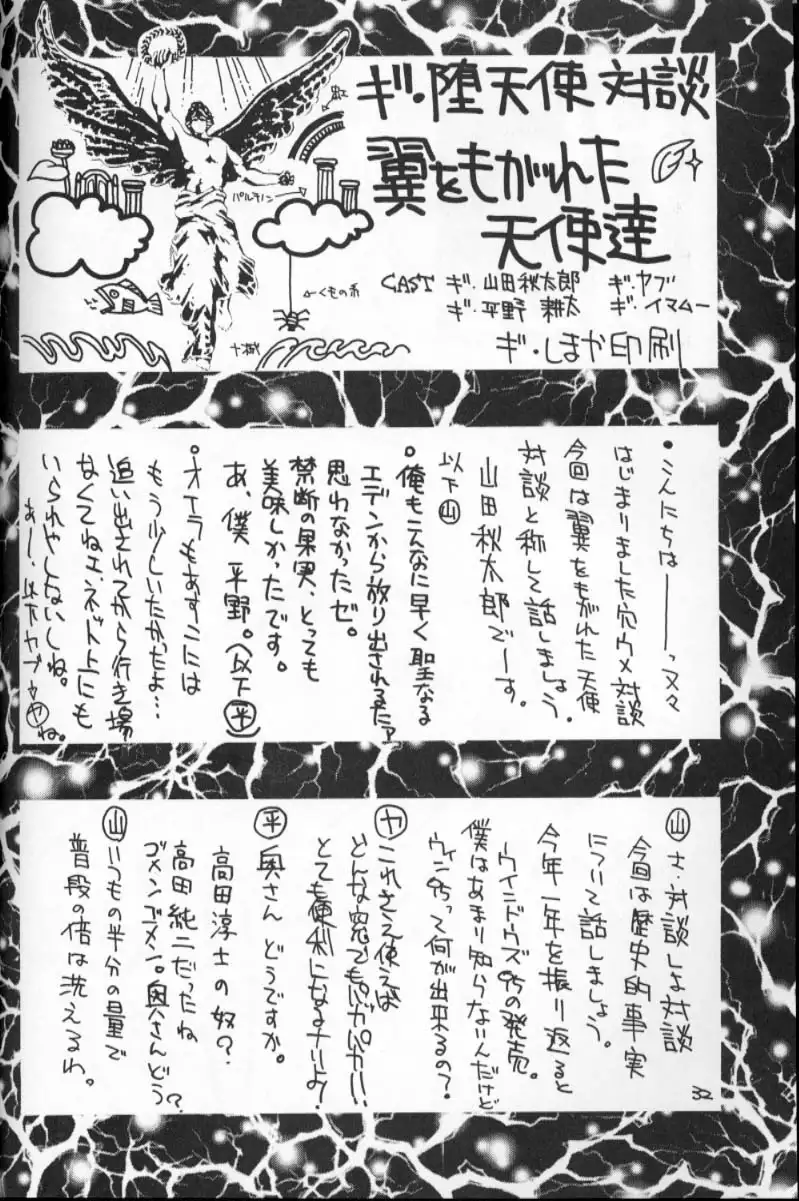 ギ・堕天使 対談
翼をもがれた
天使達
虹
パルテノン
←くもの糸
CAST ギ・山田秋太郎 ギ・ヤブ
ギ・平野 耕太 ギ・イマムー
ギ・しまや印刷
・こんにちは───っ又々
はじまりました穴ウメ対談
今回は翼をもがれた天使
対談と称して話しましょう。
山田秋太郎でーす。
以下㊤
・俺もこんなに早く聖なる
エデンから放り出されるたァ
思わなかったゼ。
禁断の果実、とっても
美味しかったです。
あ、僕 平野。(以下㊥)
・オイラもあすこには
もう少しいたかったよ…
追い出されてから行き場
なくてねェ、ネットの上にも
いられやしないしね。
あー、
ヤブ
ね。
山 さ・対談しよ対談
今回は歴史的事実
について話しましょう。
今年一年を振り返ると
ウインドウズ95の発売。
僕はあまり知らないんだけど
ウィン95って何が出来るの?
ヤ これさえ使えば
どんな窓でもパカパカ!!
とても便利になるナリよ!
平 奥さん どうですか。
高田淳士の奴?
高田純二だったね
ゴメンゴメン。奥さんどう?
山 いつもの半分の量で
普段の倍は洗えるわ。
32